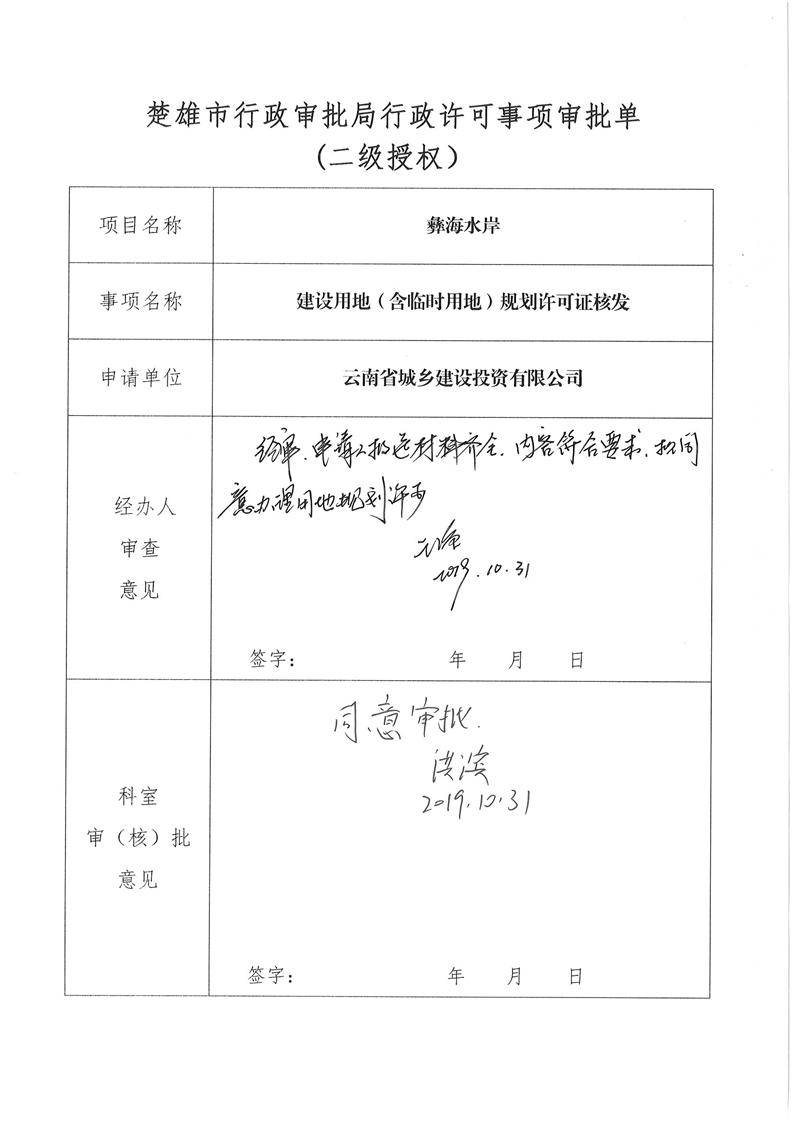 楚雄市行政审批局行政许可事项审批单
(二级授权)
项目名称
彝海水岸
事项名称
建设用地（含临时用地）规划许可证核发
申请单位
云南省城乡建设投资有限公司
经办人
审查
意见
经审.申请人报送材料齐全.内容符合要求.拟同
意办理用地规划许可
2019.10.31
签字：　年　月　日
科室
审（核）批
意见
同意审批.
洪滨
2019.10.31
签字：　年　月　日